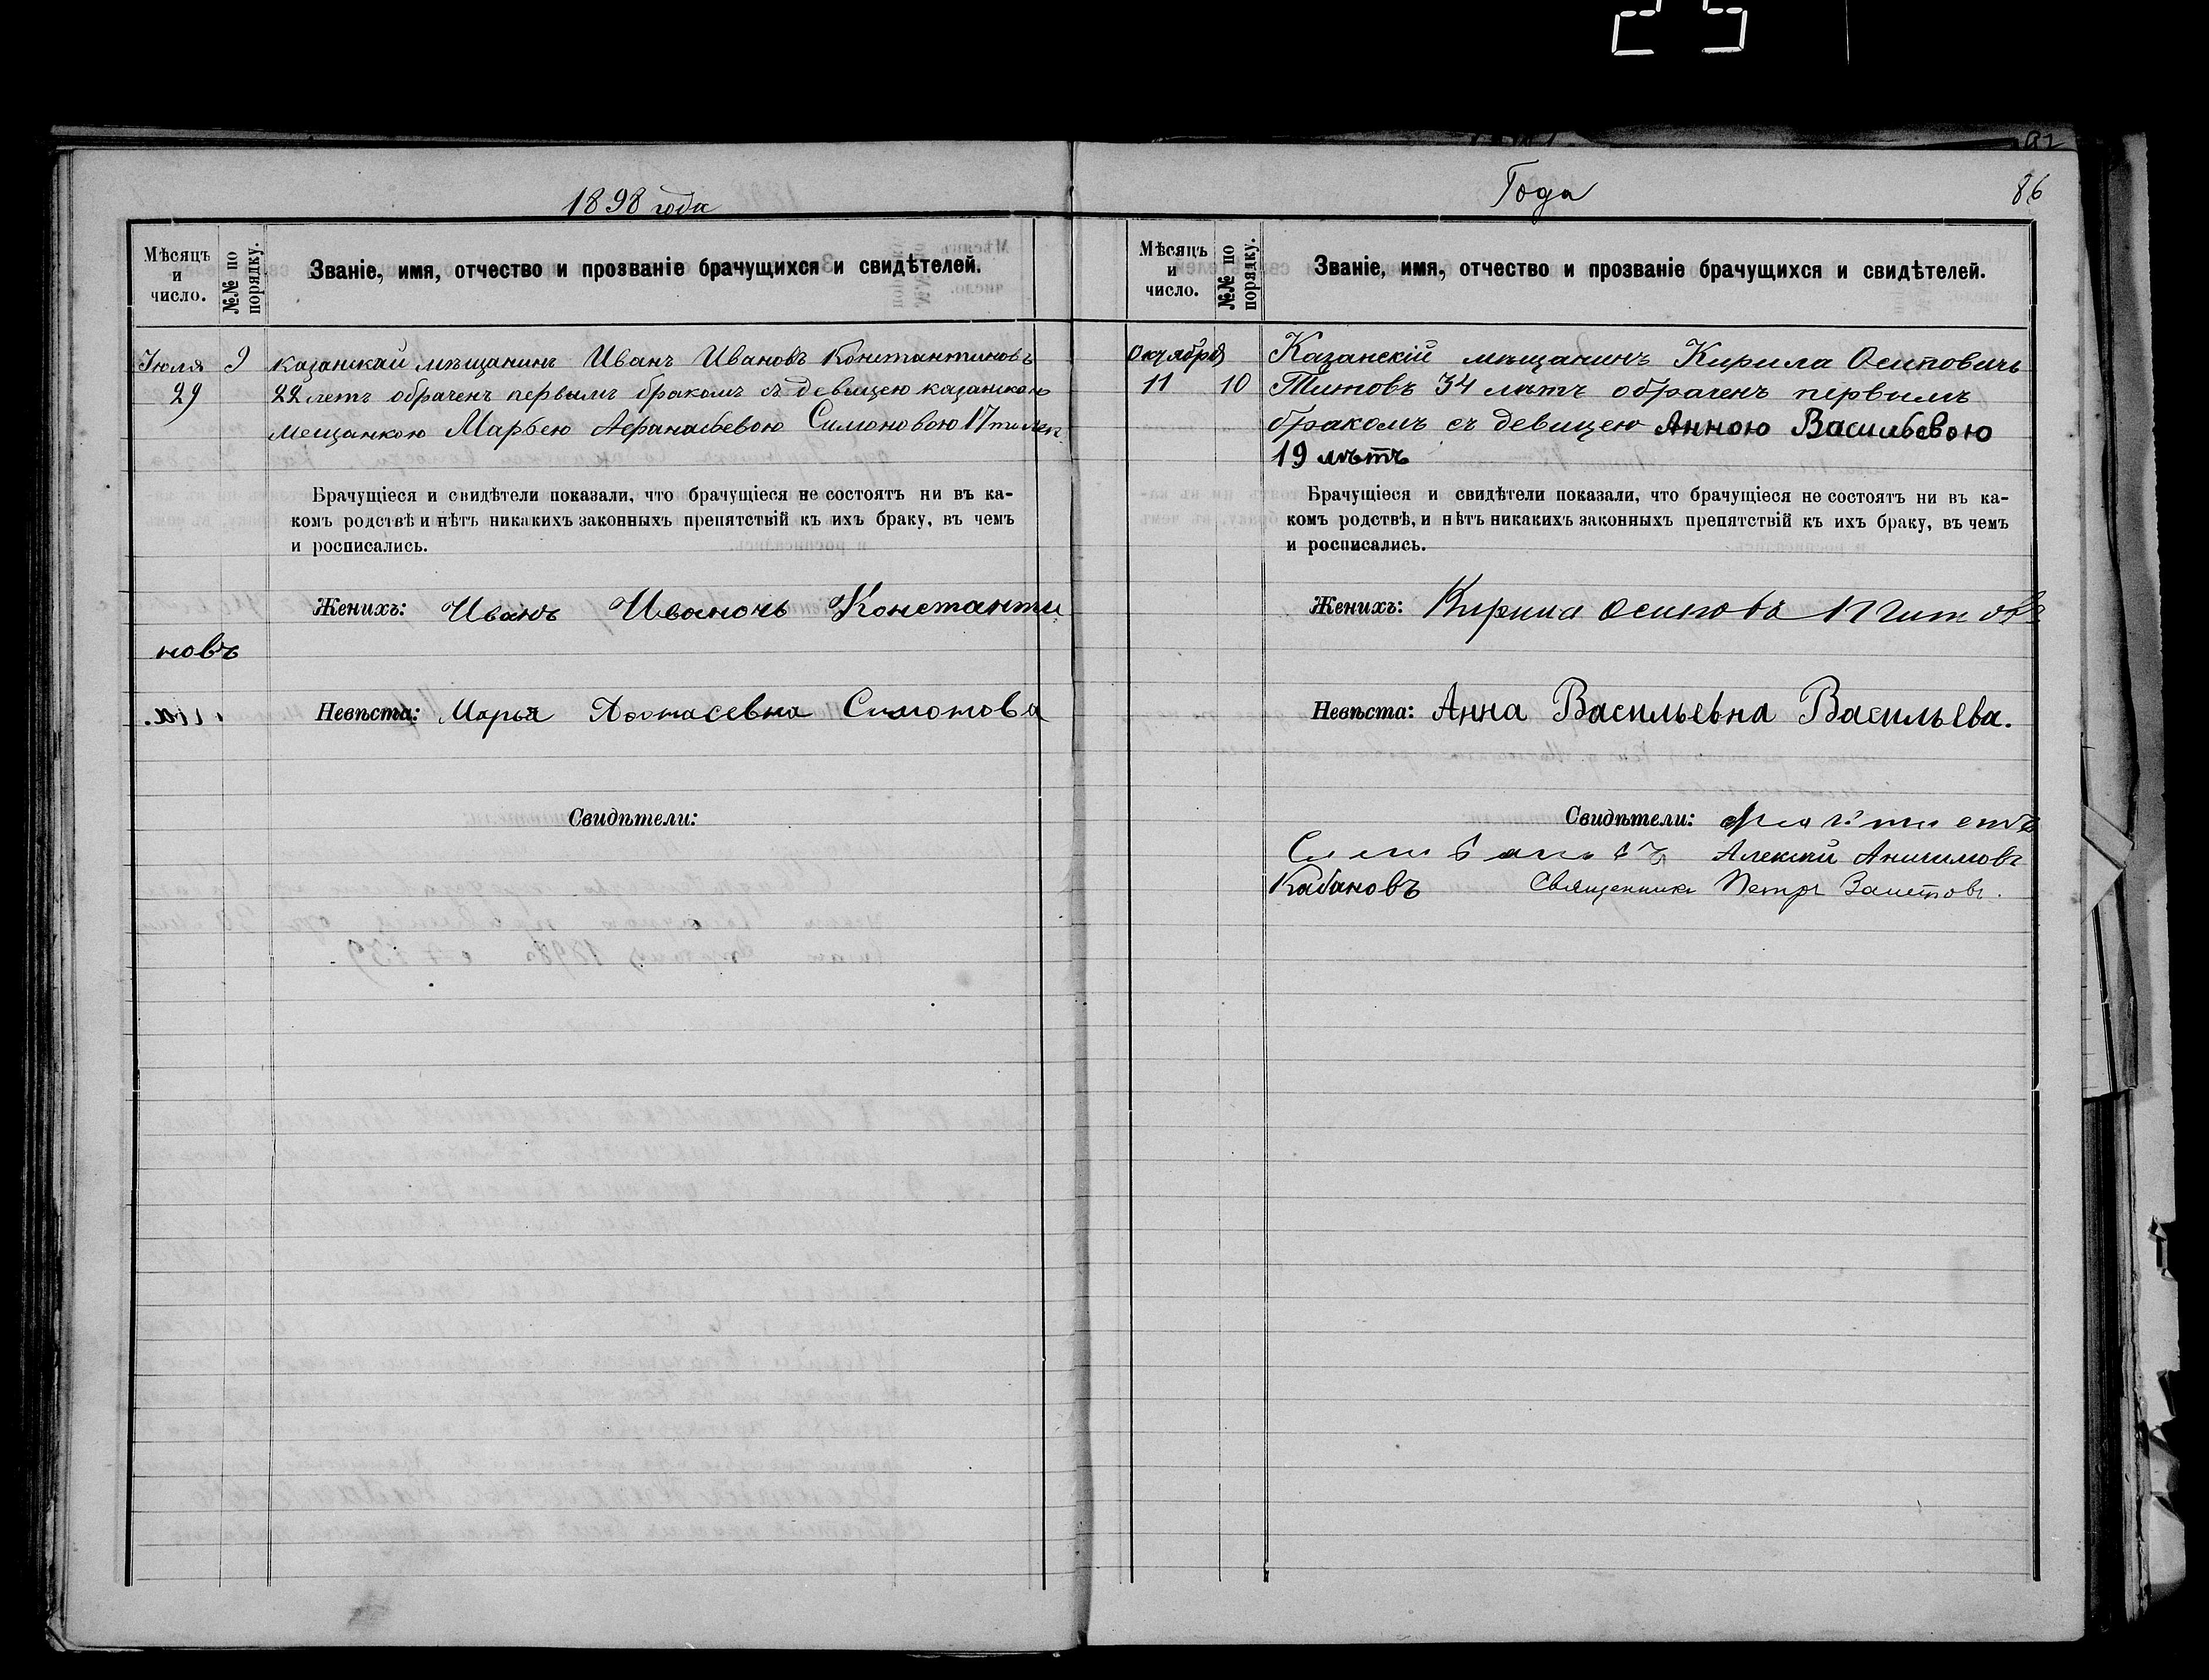 1898 года
Мѣсяцъ и число.
№№ по порядку.
Званіе, имя, отчество и прозваніе брачущихся и свидѣтелей.
Іюля 9 казанскай мѣщанинъ Иванъ Ивановъ Константиновъ
29 22 летъ обраченъ первымъ бракомъ съ девицею казанскою
мещанкою Марьею Афанасьевою Симоновою 17ти лет
Брачущіеся и свидѣтели показали, что брачущіеся не состоятъ ни въ ка-
комъ родствѣ и нѣтъ никакихъ законныхъ препятствій къ ихъ браку, въ чемъ
и росписались.
Женихъ: Иванъ Ивоночъ Константи
новъ
Невѣста: Марья Афонасевна Симонова
Свидѣтели:
Года
86
Мѣсяцъ и число.
№№ по порядку.
Званіе, имя, отчество и прозваніе брачущихся и свидѣтелей.
Октября Казанскій мѣщанинъ Кирила Осиповичь
11 10 Титовъ 34 лѣтъ обраченъ первымъ
бракомъ съ девицею Анною Васильевою
19 лѣтъ
Брачущіеся и свидѣтели показали, что брачущіеся не состоятъ ни въ ка-
комъ родствѣ, и нѣтъ никакихъ законныхъ препятствій къ ихъ браку, въ чемъ
и росписались.
Женихъ: Кирила осипова
Невѣста: Анна Васильевна Васильева.
Свидѣтели:
Алексѣй Анисимовъ
Кабановъ Священникъ Петръ Залетовъ.